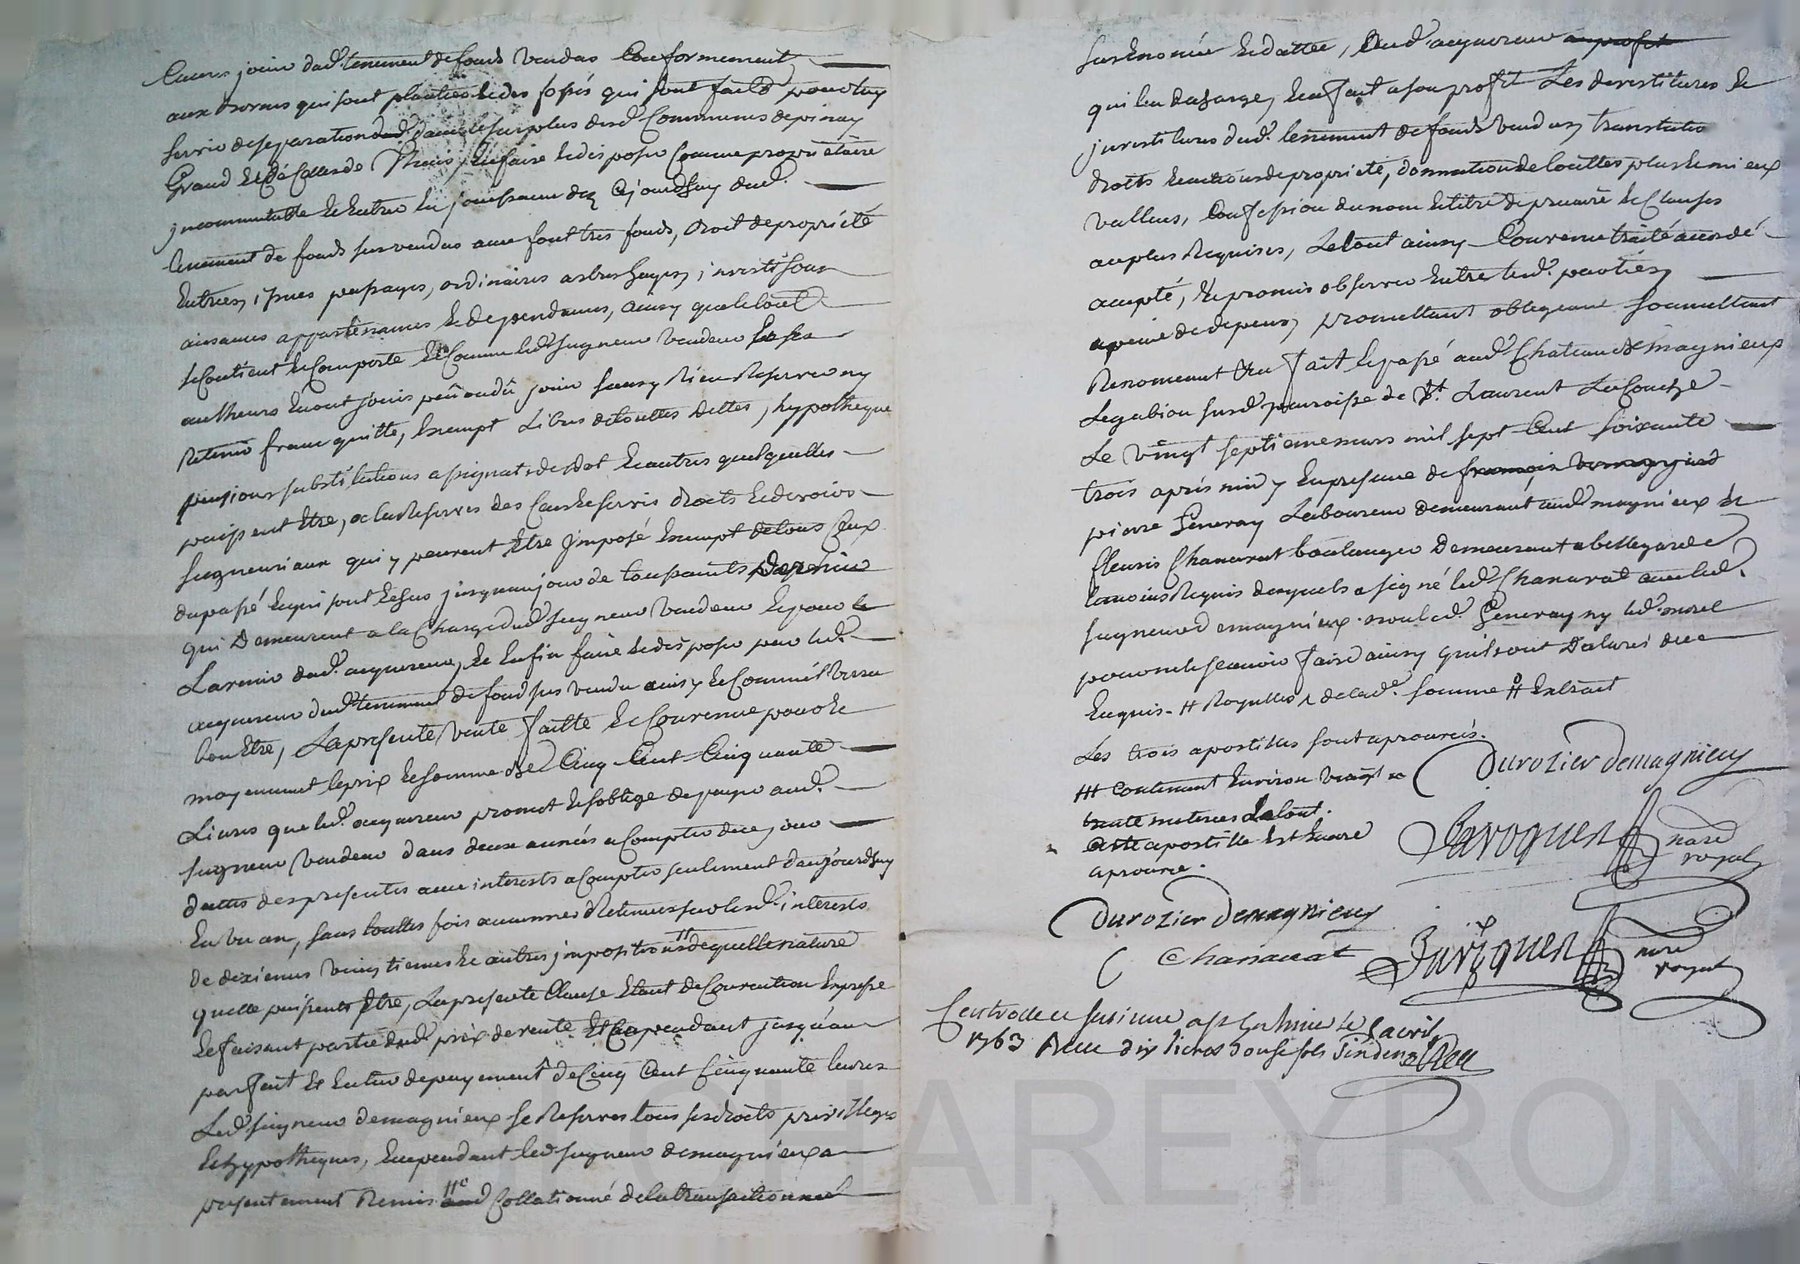 jouir dud. tenement de fonds vendus Conformement
aux bornes qui sont plantées et des fossés qui sont faits pour luy
servir de separation dud. dans le surplus desd. Communes de pinay
Grand et de Colas de et en faire et disposer Comme proprietaire
jncommutable et entrer en jouissance dez Cejourdhuy dud.
tenement de fonds sus vendus avec font tres fonds, droit de proprieté
Entrées, issues passages, ordinaires arbres hayes, investisons
aisances appartenances et dependances, ainsy que le tout
se Contient et Comporte et Comme led. seigneur vendeur et ses
autheurs en ont jouis peû ou dû jouir sans y Rien Reserver ny
Retenir franc quitte, Exempt Libre de touttes dettes, hypotheque
pensions substitutions assignats de dot et autres quelquelles
puissent Etre, a la Reserve des Cens et servis droits et devoirs
seigneuriaux qui y peuvent Etre jmposé Exempt de tous Ceux
du passé et qui sont echus jusquau jour de toussaints Dernier
qui Demeurent a la Charge dud. seigneur vendeur et pour le
Lavenir dud. acquereur, et Enfin faire et disposer par led.
acquereur dud. tenement de fond sus vendu ainsy et Comme verra
bon Etre, La presente vente faitte et Convenue pour et
moyennant le prix et somme de Cinq Cent Cinquante
Livres que led. acquereur promet et soblige de payer aud.
seigneur vendeur dans deux années a Compter du jour
dattes des presentes avec interests a Compter seulement daujourdhuy
En un an, sans touttes fois aucunnes Retenues sur lesd. interests
de dixiemes vingtiemes et autres jmpositions # de quelle nature
quelle puissent Etre, La presente Clause Etant de Convention Expresse
et faisant partie dud. prix de vente Et Cependant jusqu'au
parfait et Entier de payement de Cinq Cent Cinquante livres
Led. seigneur de magnieux se Reserve tous ses droits privilleges
et hypotheques, Et cependant led. seigneur de magnieux a
presentement Remis Collationné de la transaction
sus Enoncée et dattée, aud. acquereur
qui len decharge, et a fait a son profit Les devestitures et
jnvestitures dud. tenement de fonds vendus, translation
droits et actions de proprieté, donnation de touttes plus et mieux
vallues, Confession du nom et titre de precaire et Clauses
au plus Requises, Le tout ainsy Convenu traité accordé
accepté, et promis observer Entre lesd. parties
a peine de depens, promettant obligeant soumettant
Renoncent &a fait et passé aud. Chateau de magnieux
Le gabion susd. parroisse de St. Laurent La Conche
Le vingt septieme mars mil sept Cent soixante
trois apres midy En presence de
pierre Generay Laboureur demeurant aud. magnieux et
fleuris Chanavat boulanger Demeurant a bellegarde
temoins Requis desquels a signé led. Chanavat avec led.
seigneur de magnieux non led. Generay ny led. morel
pour ne le scavoir faire ainsy quil ont Declaré de ce
Enquis # Royalles, de lad. somme # Extrait
Les trois apostilles sont aprouvées.
Durozier demagnieux
### Contenant Environ vingt ou
trente meterées Le tout.
cette apostille est Encore
aprouvée.
nore
royal
Durozier Demagnieux
Chanavat
nore
royal
avril
1763 Recu dix livres douze sols
CHAREYRON